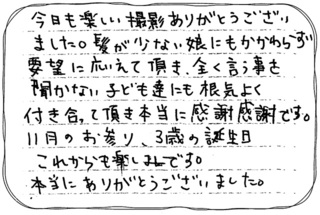 今日も楽しい撮影ありがとうござい
ました。髪が少ない娘にもかかわらず
要望に応えて頂き、全く言う事を
聞かない子ども達にも根気よく
付き合って頂き本当に感謝感謝です。
11月のお参り、3歳の誕生日
これからも楽しみです。
本当にありがとうございました。